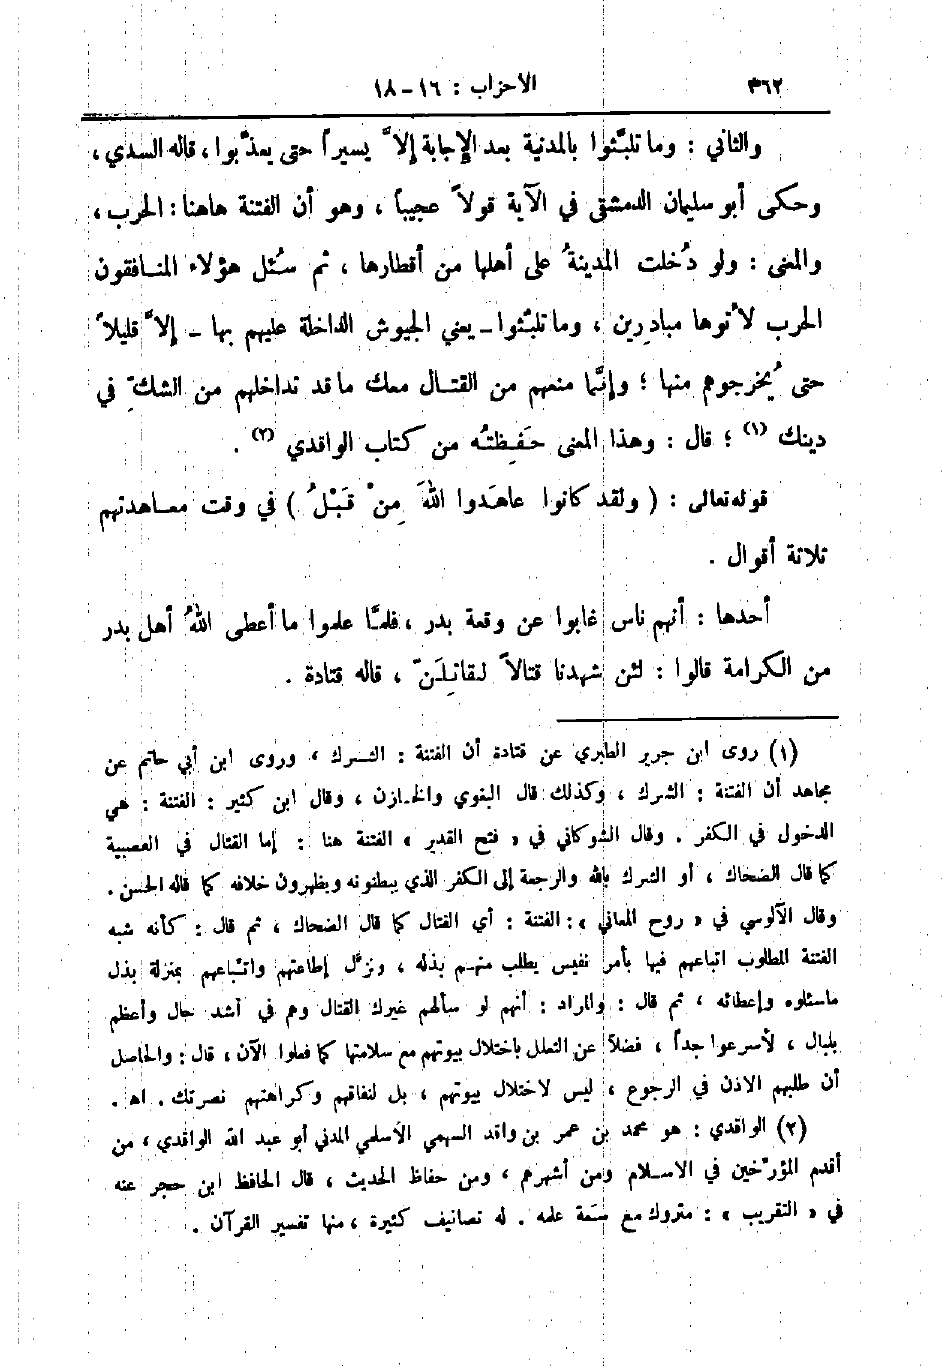 ٣٦٢ الاحزاب : ١٦-١٨
والثاني : وما تلبَّثوا بالمدينة بعد الإجابة إلاَّ يسيراً حتى يعذَّبوا ، قاله السدي ،
وحكى أبو سليمان الدمشقي في الآية قولاً عجيباً ، وهو أن الفتنة هاهنا : الحرب ،
والمعنى : ولو دُخلت المدينةُ على أهلها من أقطارها ، ثم سُئل هؤلاء المنافقون
الحرب لأَتوها مبادِرين ، وما تلبَّثوا – يعني الجيوش الداخلة عليهم بها – إلاَّ قليلاً
حتى يُخرجوهم منها ؛ وإنَّما منعهم من القتال معك ما قد تداخلهم من الشكِّ في
دينك (١) ؛ قال : وهذا المعنى حَفِظتُه من كتاب الواقدي (٢) .
قوله تعالى : ( ولقد كانوا عاهَدوا اللّهَ مِنْ قَبْلُ ) في وقت معاهدتهم
ثلاثة أقوال .
أحدها : أنهم ناس غابوا عن وقعة بدر ، فلمَّا علموا ما أعطى اللّهُ أهل بدر
من الكرامة قالوا : لئن شهدنا قتالاً لنقاتِلَنّ ، قاله قتادة .
(١) روى ابن جرير الطبري عن قتادة أن الفتنة : الشرك ، وروى ابن أبي حاتم عن
مجاهد أن الفتنة : الشرك ، وكذلك قال البغوي والخازن ، وقال ابن كثير : الفتنة : هي
الدخول في الكفر . وقال الشوكاني في « فتح القدير » الفتنة هنا : إما القتال في العصبية
كما قال الضحاك ، أو الشرك بالله والرجعة إلى الكفر الذي يبطنونه ويظهرون خلافه كما قاله الحسن .
وقال الآلوسي في « روح المعاني » : الفتنة : أي القتال كما قال الضحاك ، ثم قال : كأنه شبه
الفتنة المطلوب اتباعهم فيها بأمر نفيس يطلب منهم بذله ، ونزَّل إطاعتهم واتِّباعهم بمنزلة بذل
ماسئلوه وإعطائه ، ثم قال : والمراد : أنهم لو سألهم غيرك القتال وهم في أشد حال وأعظم
بلبال ، لأسرعوا جداً ، فضلاً عن التعلل باختلال بيوتهم مع سلامتها كما فعلوا الآن ، قال : والحاصل
أن طلبهم الاذن في الرجوع ، ليس لاختلال بيوتهم ، بل لنفاقهم وكراهتهم نصرتك . اهـ .
(٢) الواقدي : هو محمد بن عمر بن واقد السهمي الأسلمي المدني أبو عبد الله الواقدي ، من
أقدم المؤرّخين في الاسلام ومن أشهرهم ، ومن حفاظ الحديث ، قال الحافظ ابن حجر عنه
في « التقريب » : متروك مع سَعة علمه . له تصانيف كثيرة ، منها تفسير القرآن .